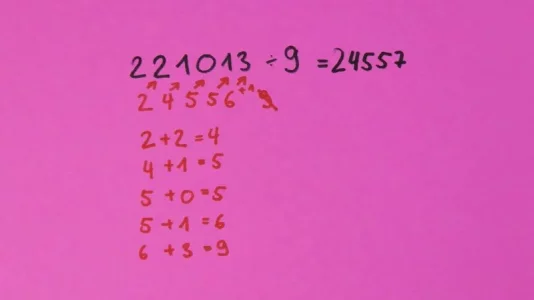 221013 ÷ 9 = 24557
2 4 5 5 6 +1 9
2+2=4
4+1=5
5+0=5
5+1=6
6+3=9